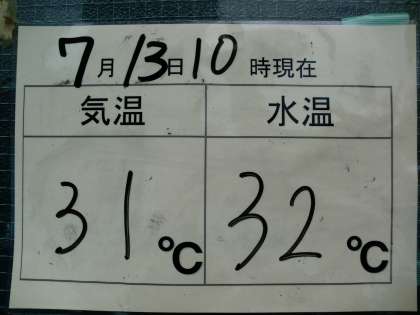 7月13日10時現在
気温 水温
31℃ 32℃